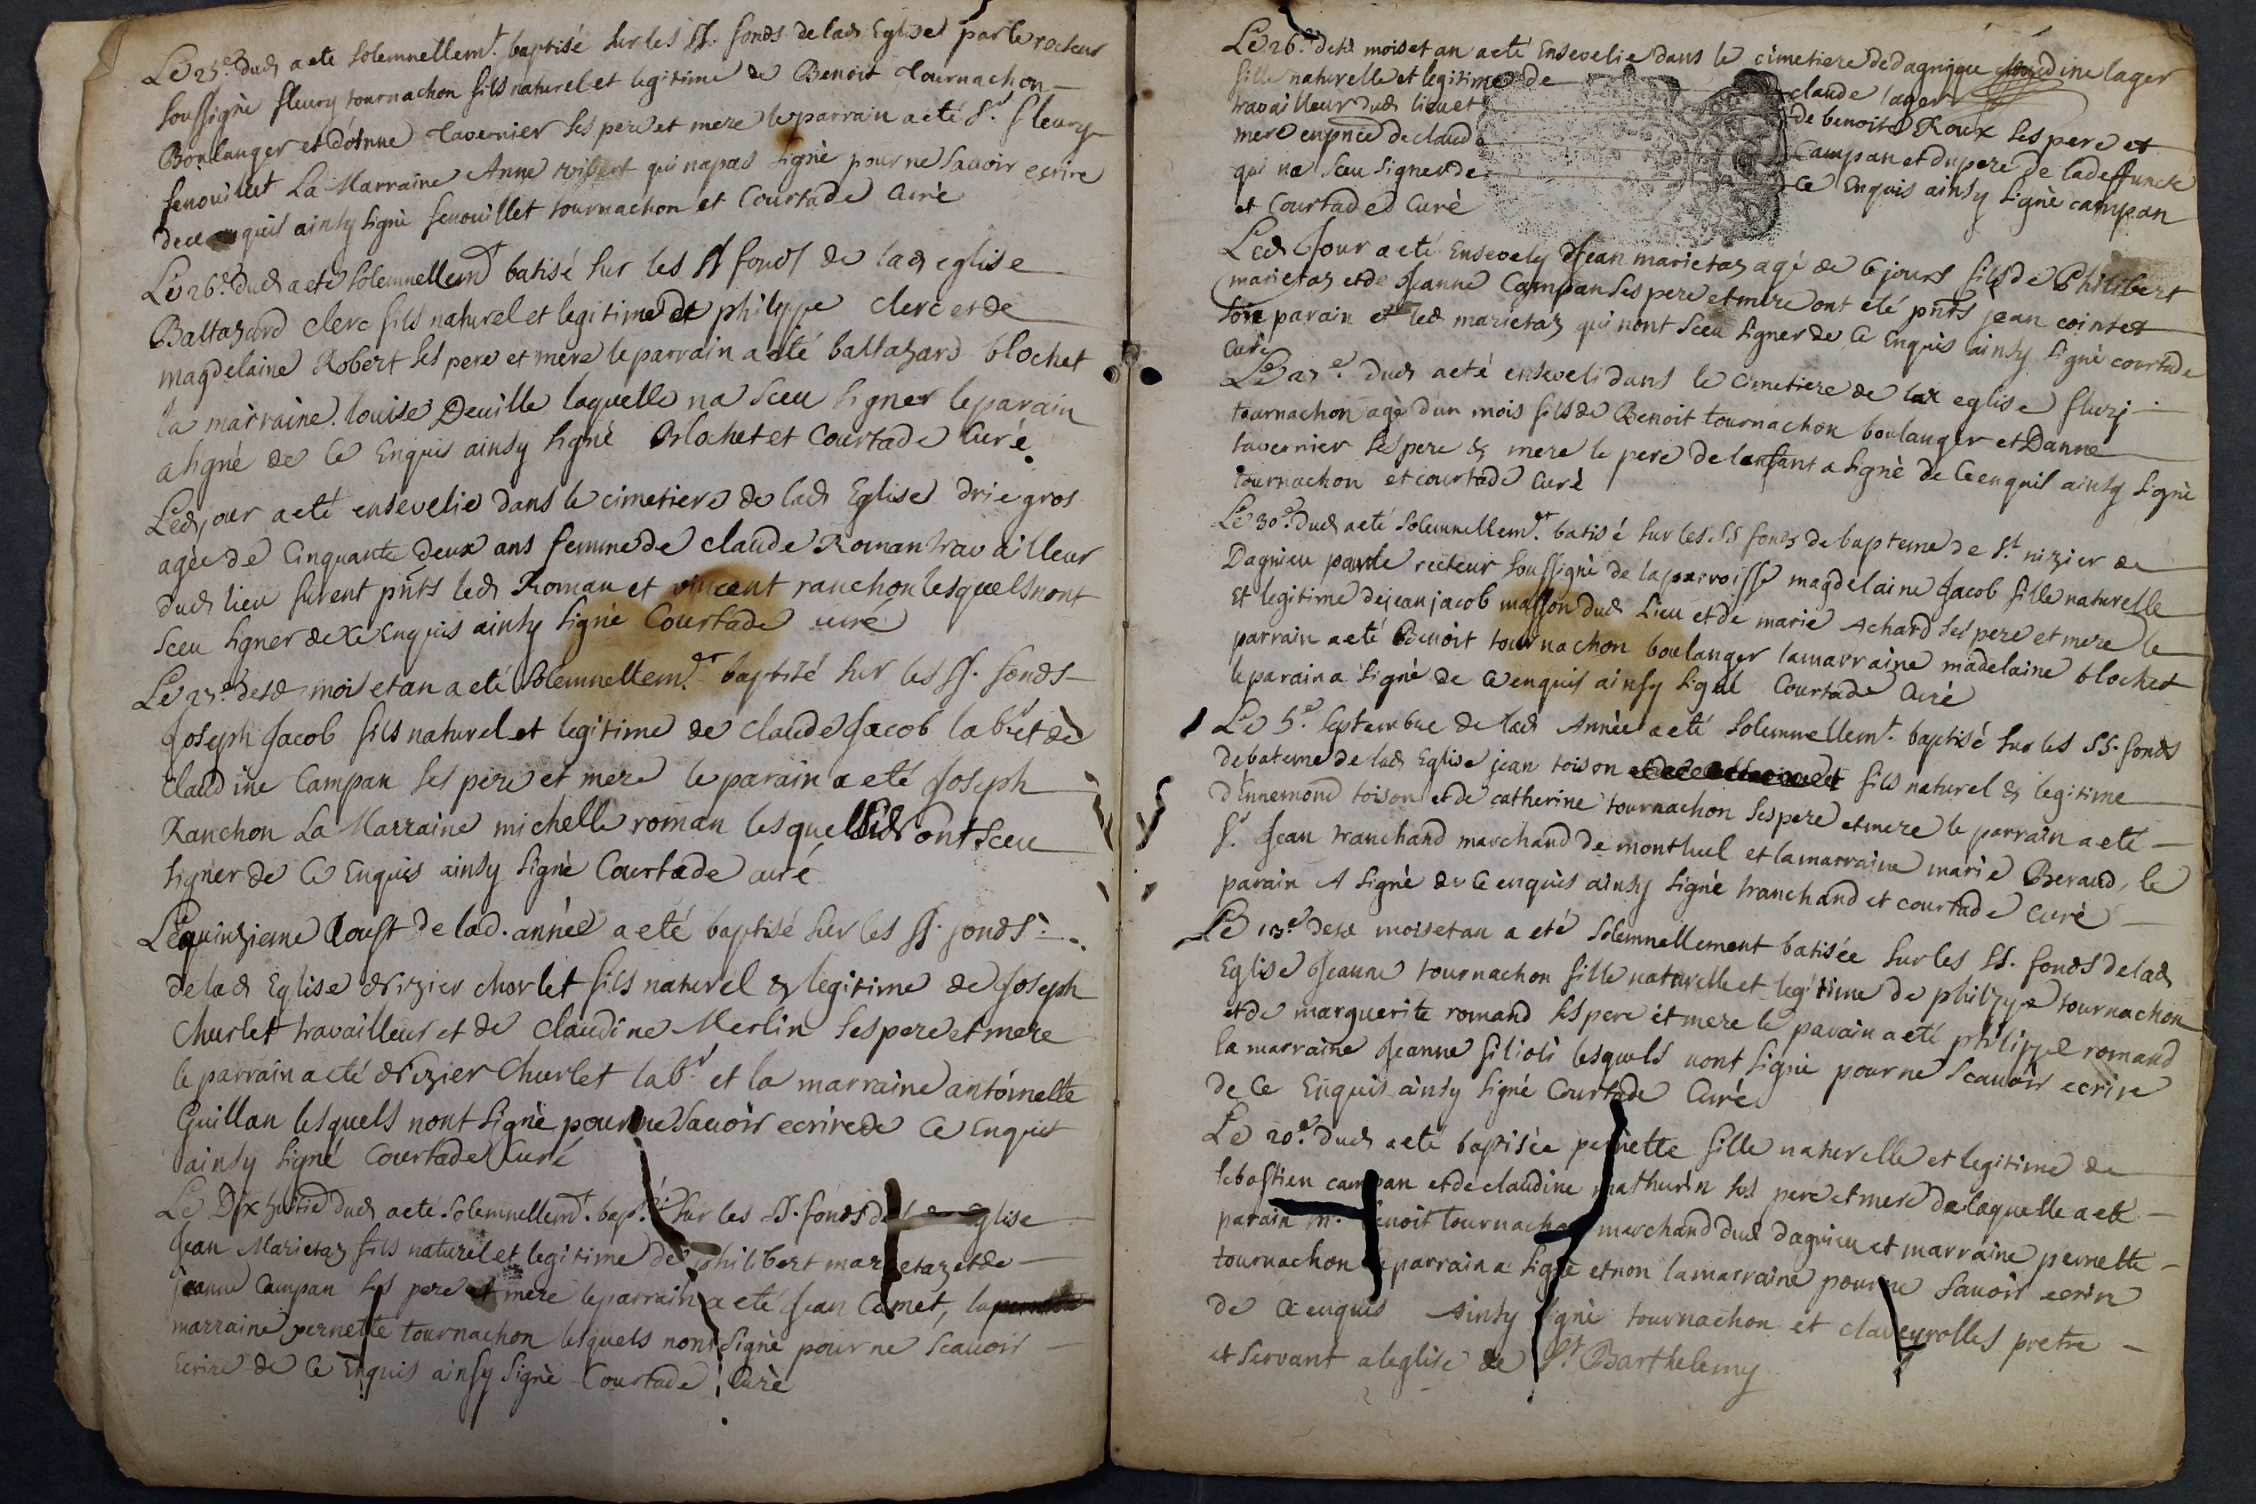 Le 25e. dud a eté solemnellemt. baptisé sur les SS. fonds de lad Eglise par le recteur
soussigné fleury tournachon fils naturel et legitime de Benoit Tournachon
Boulanger et d'Anne Tavernier ses pere et mere le parrain a eté Sr. fleury
fenouillet La Marraine Anne qui n'a pas signè pour ne savoir ecrire
de ce enquis ainsy signè fenouillet tournachon et Courtade Curè
Le 26e. dud a eté solemnellemt batisé sur les SS fonds de lad eglise
Baltazard clerc fils naturel et legitime de philippe clerc et de
magdelaine Robert ses pere et mere le parrain a eté baltazard blochet
la marraine louise Deuille laquelle na sceu signer le parain
a signé de Ce Enquis ainsy signé Blochet et Courtade Curé.
Led jour a eté ensevelie dans le cimetiere de lad Eglise drie gros
agée de Cinquante deux ans femme de claude Roman travailleur
dud lieu furent pnts led Roman et vincent ranchon lesquels nont
sceu signer de Ce Enquis ainsy signé Courtade curé
Le desd mois et an a eté solemnellemt. baptisé sur les SS. fonds
Joseph Jacob fils naturel et legitime de claude Jacob labr et de
claudine Campan ses pere et mere le parain a eté Joseph
Ranchon La Marraine michelle roman lesquels ont sceu
signer de Ce Enquis ainsy signè Courtade curé
Le quinzieme Aoust de lad. année a eté baptisé sur les SS. fonds
de lad Eglise Nizier churlet fils naturel & legitime de Joseph
Churlet travailleur et de claudine Merlin ses pere et mere
le parrain a eté Nizier Churlet labr. et la marraine antoinette
Guillan lesquels nont signè pour ne savoir ecrire de Ce Enquis
ainsy signé Courtade Curé
Le Dix huitie dud a eté solemnellemt. bapsé. sur les SS. fonds de lad Eglise
Jean Marietaz fils naturel et legitime de philibert marietaz et de
jeanne Campan ses pere et mere le parrain a eté Jean la
marraine pernette tournachon lesquels nont signè pour ne scavoir
Ecrire de Ce Enquis ainsy signè Courtade Curè
Le 26e. desd mois et an a eté Ensevelie dans le cimetiere de dagnieu claudine lager
fille naturelle et legitime de claude lager
travailleur dud lieu et de benoite Roux ses pere et
mere en pnce de claude Campan et du pere de la deffuncte
qui na sceu signer de Ce Enquis ainsy signè campan
et Courtade Curè
Led Jour a eté Ensevely Jean marietaz agé de 6 jours fils de Philibert
marietaz et de Jeanne Campan ses pere et mere ont eté pnts jean cointet
son parain et led marietaz qui nont sceu signer de Ce Enquis ainsy signè courtade
Curé
Le dud a eté enseveli dans le Cimetiere de lad eglise flury
tournachon agé dun mois fils de Benoit tournachon boulanger et Danne
tavernier ses pere & mere le pere de lenfant a signè de Ce enquis ainsy signè
tournachon et courtade Curè
Le 30e. dud a eté solemnellemt. batisé sur les SS fonds de bapteme de St nizier de
Dagnieu par le recteur soussigné de la parroisse magdelaine Jacob fille naturelle
et legitime de jean jacob masson dud Lieu et de marie Achard ses pere et mere le
parrain a eté Benoit tournachon boulanger la marraine madelaine blochet
le parain a signé de Ce enquis ainsy signé Courtade Curè
Le 5e. septembre de lad Année a eté solemnellemt. baptisé sur les SS. fonds
de bateme de lad Eglise jean toison fils naturel & legitime
dEnnemond toison et de catherine tournachon ses pere et mere le parrain a eté
Sr. Jean tranchand marchand de montluel et la marraine marie Beraud, le
parain A signè de Ce enquis ainsy signè tranchand et courtade Curè
Le 13e desd mois et an a eté solemnellement batisée sur les SS. fonds de lad
Eglise Jeanne tournachon fille naturelle et legitime de philippe tournachon
et de marguerite romand ses pere et mere le parain a eté philippe romand
la marraine Jeanne filioli lesquels nont signè pour ne scavoir ecrire
de Ce Enquis ainsy signé Courtade Curé
Le 20e. dud a eté baptisée pernette fille naturelle et legitime de
sebastien campan et de claudine mathurin ses pere et mere de laquelle a eté
parain Mr. benoit tournachon marchand dud dagnieu et marraine pernette
tournachon le parrain a signé et non la marraine pour ne savoir ecrire
de Ce enquis Ainsy signè tournachon et claveyrolles pretre
et servant a leglise de St. Barthelemy